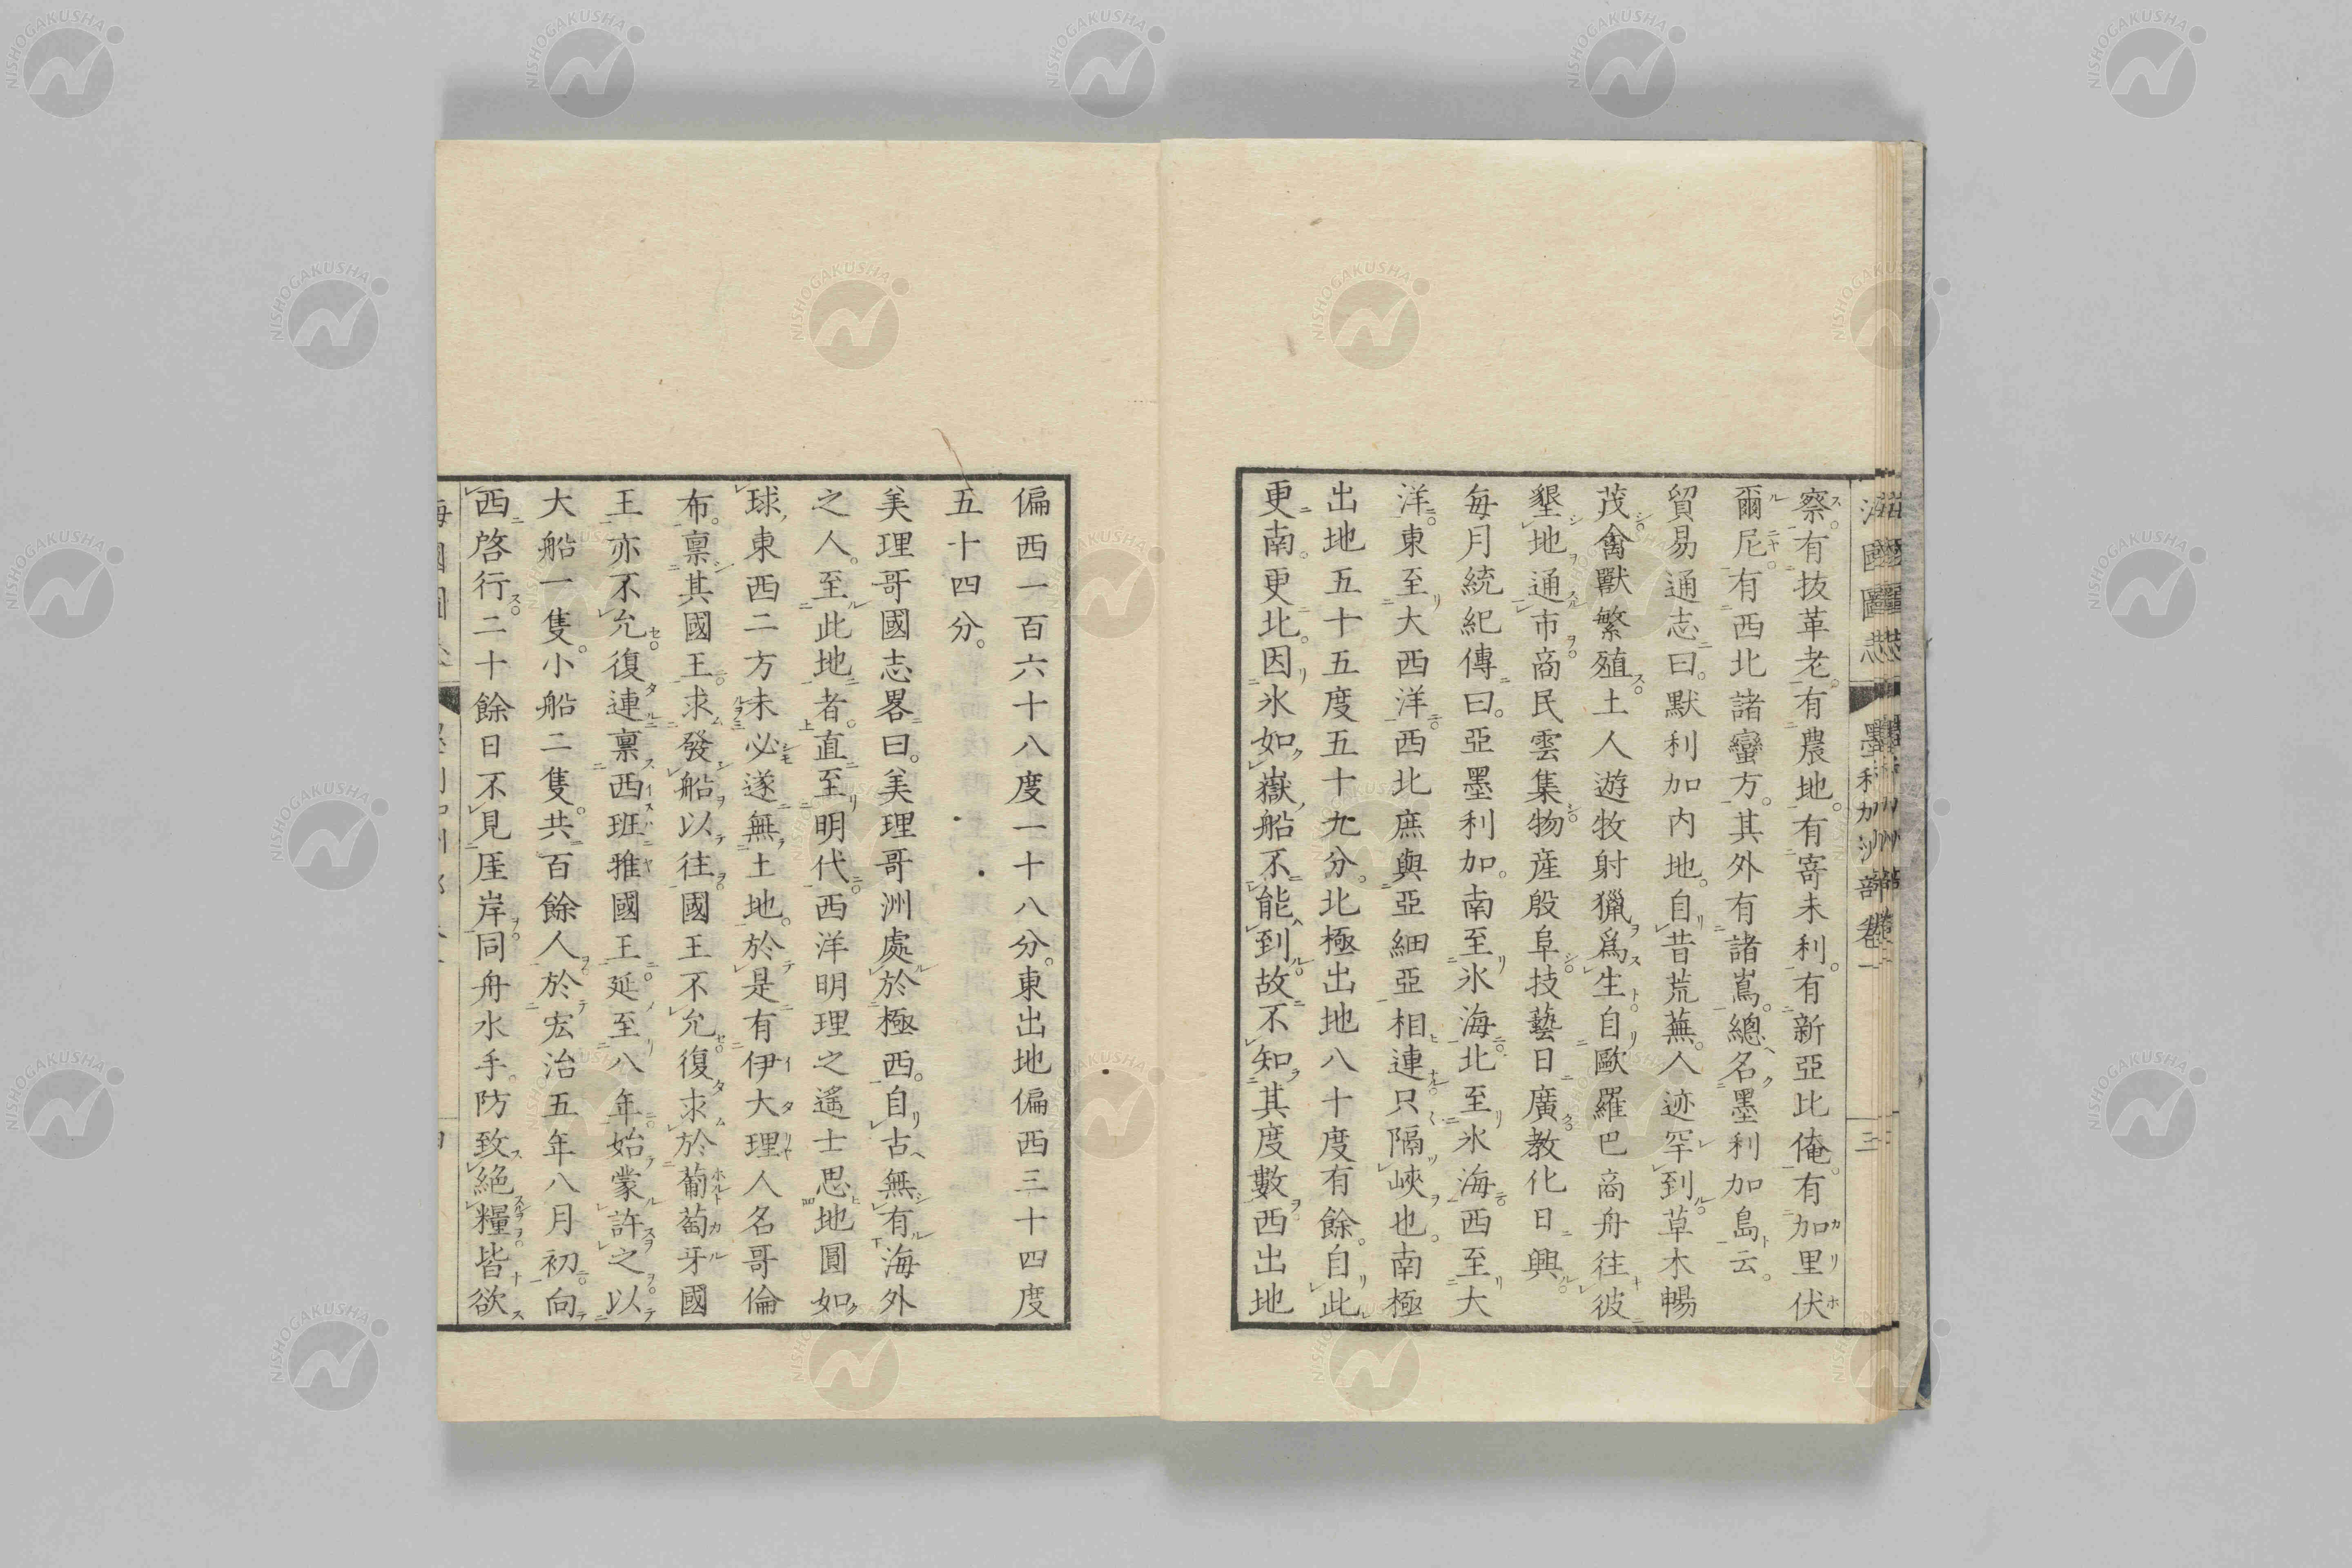 海國圖志 墨利加洲部卷一 三
察有抜革老有農地有寄未利有新亞比俺有加里伏
爾尼有西北諸蠻方其外有諸島總名墨利加島云
貿易通志曰默利加内地自昔荒蕪人迹罕到草木暢
茂禽獸繁殖土人遊牧射獵爲生自歐羅巴商舟往彼
墾地通市商民雲集物産殷阜技藝日廣教化日興
毎月統紀傳曰亞墨利加南至氷海北至氷海西至大
洋東至大西洋西北庶與亞細亞相連只隔峽也南極
出地五十五度五十九分北極出地八十度有餘自此
更南更北因氷如嶽船不能到故不知其度數西出地
偏西一百六十八度一十八分東出地偏西三十四度
五十四分
美理哥國志畧曰美理哥洲處於極西自古無有海外
之人至此地者直至明代西洋明理之遙士思地圓如
球東西二方未必遂無土地於是有伊大理人名哥倫
布稟其國王求發船以往國王不允復求於葡萄牙國
王亦不允復連稟西班雅國王延至八年始蒙許之以
大船一隻小船二隻共百餘人於宏治五年八月初向
西啓行二十餘日不見厓岸同舟水手防致絶糧皆欲
NISHOGAKUSHA